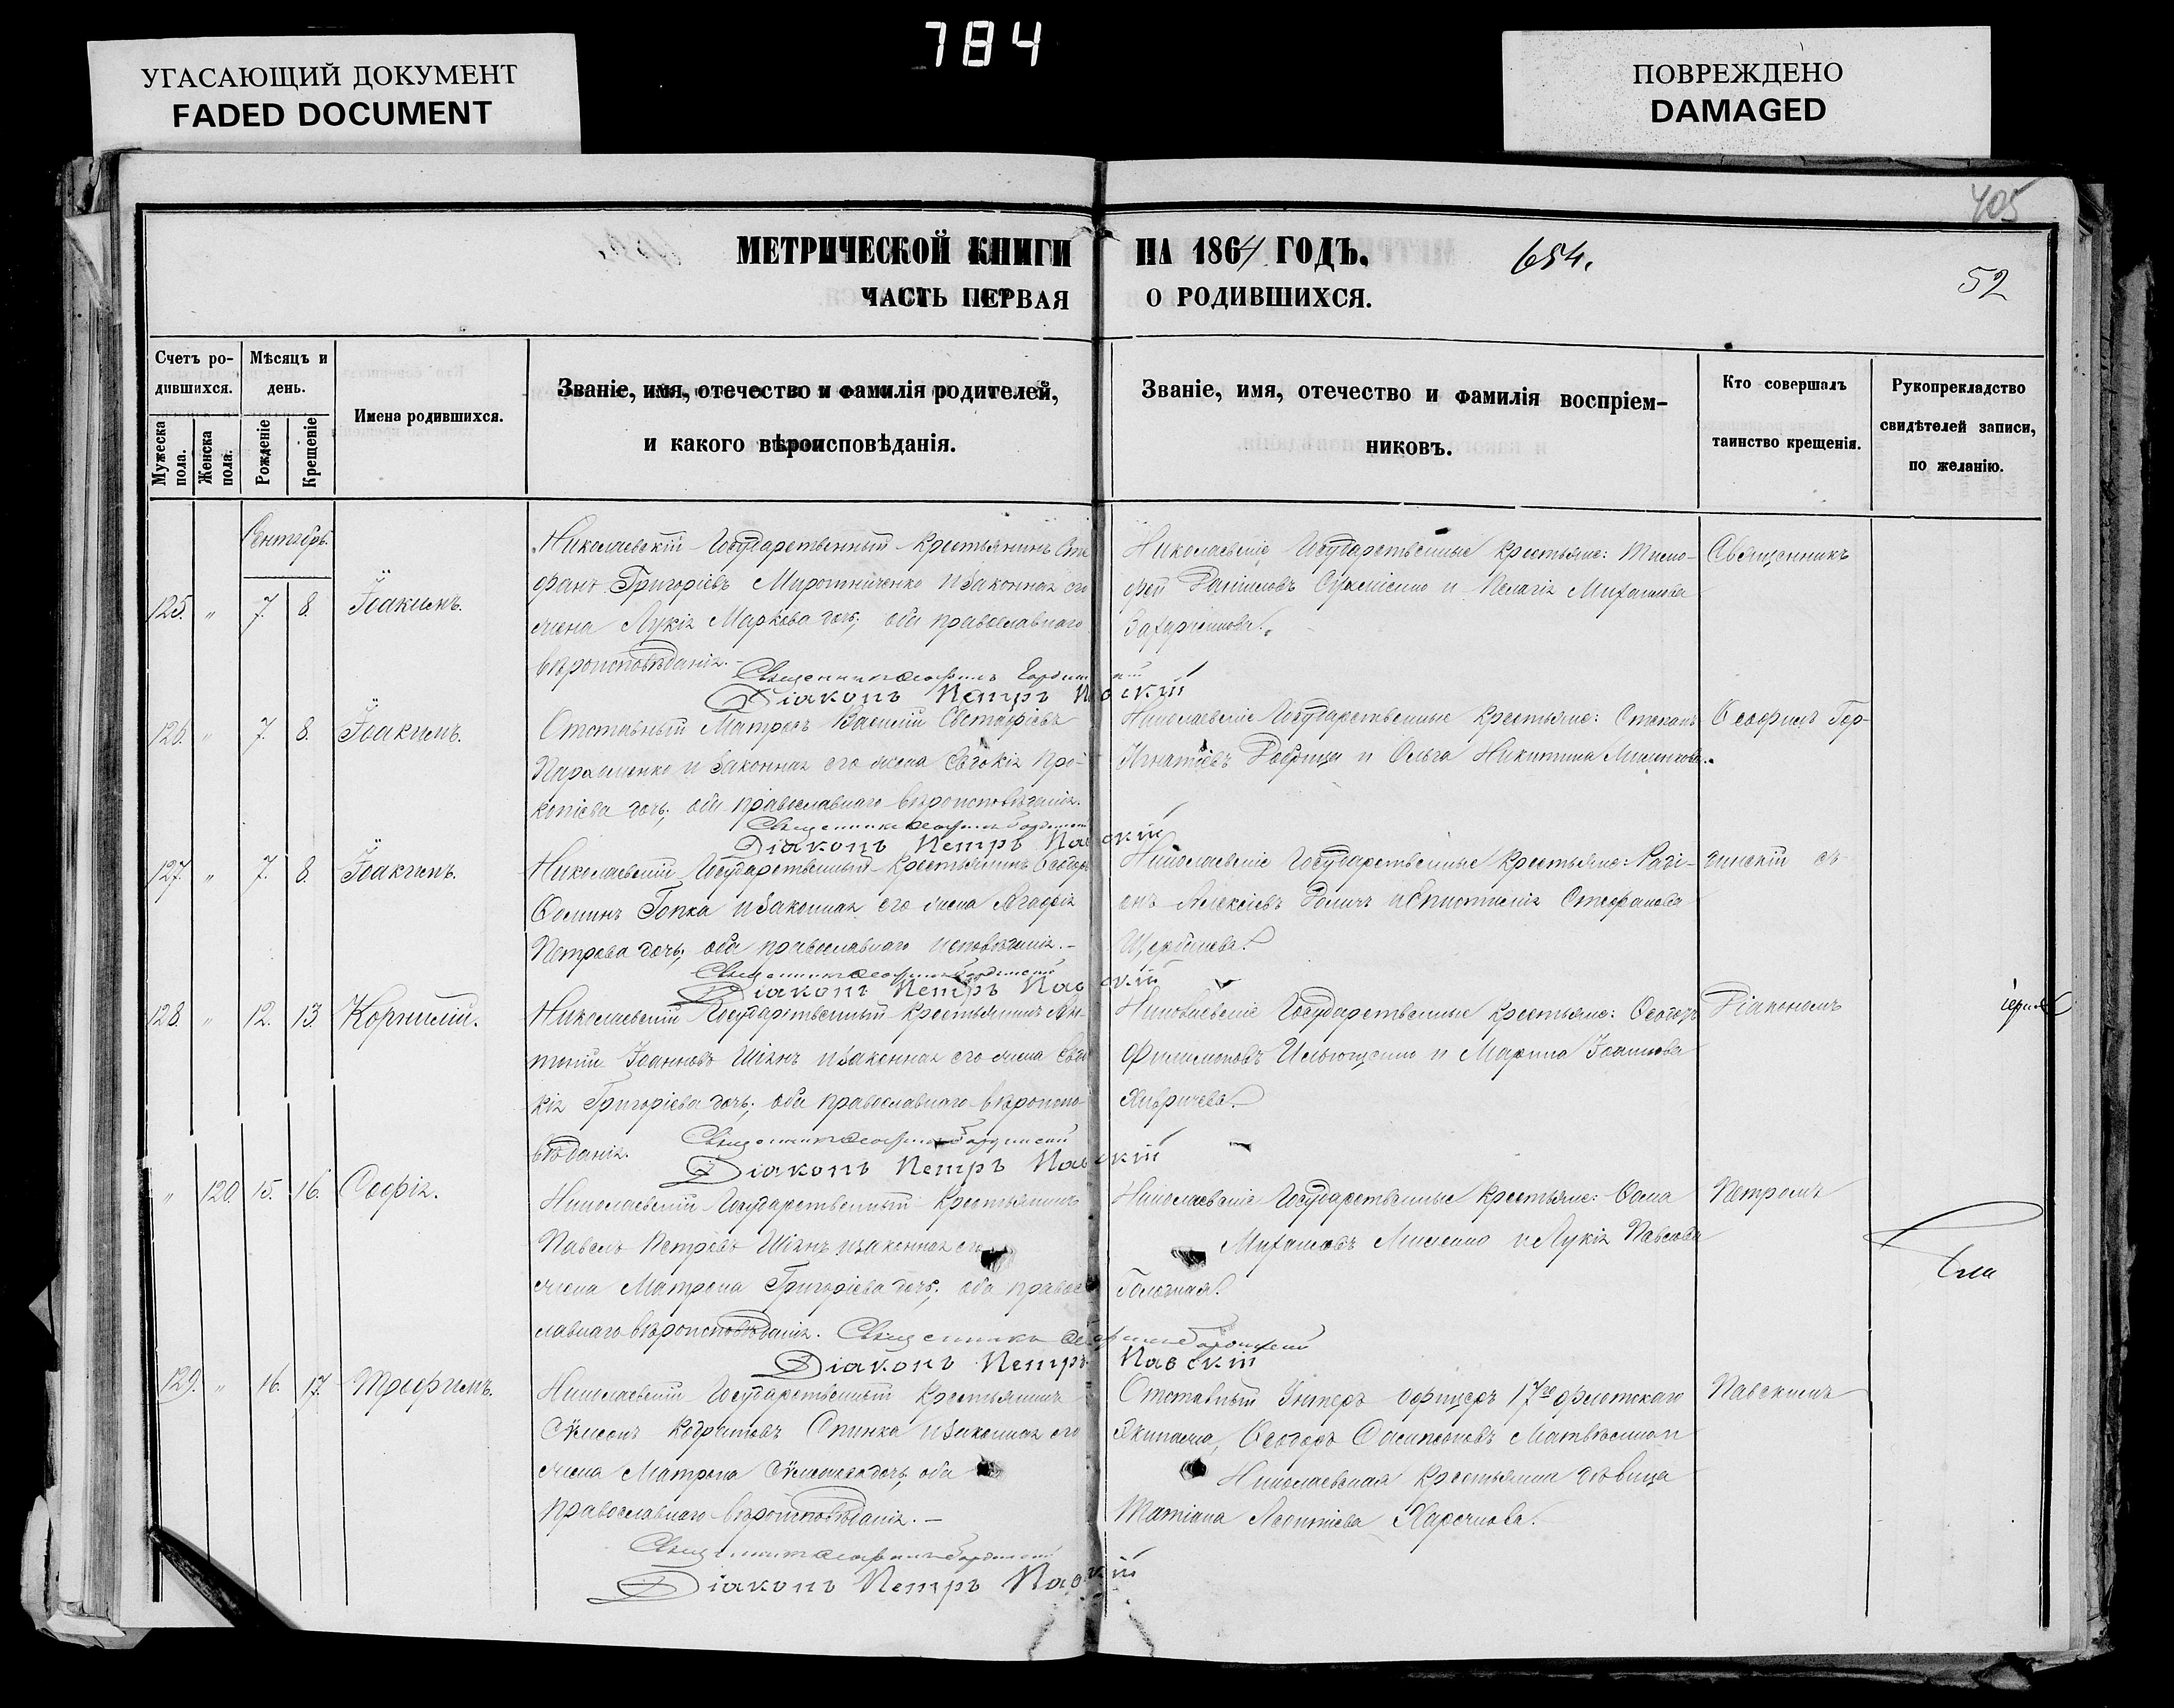 784
УГАСАЮЩИЙ ДОКУМЕНТ
FADED DOCUMENT
ПОВРЕЖДЕНО
DAMAGED
405
МЕТРИЧЕСКОЙ КНИГИ НА 1864 ГОДЪ.
654.
52
ЧАСТЬ ПЕРВАЯ О РОДИВШИХСЯ.
Счетъ родившихся.
Мужеска пола.
Женска пола.
Мѣсяцъ и день.
Рожденіе
Крещеніе
Имена родившихся.
Званіе, имя, отечество и фамилія родителей,
и какого вѣроисповѣданія.
Званіе, имя, отечество и фамилія воспріем-
никовъ.
Кто совершалъ
таинство крещенія.
Рукоприкладство
свидѣтелей записи,
по желанію.
Сентябрь.
125. " 7. 8. Іоакимъ.
Николаевскій Государственный крестьянинъ Сте-
фанъ Григоріевъ Мирошниченко и законная его
жена Лукія Маркова дочь; оба православнаго
вѣроисповѣданія.
Священникъ Ѳеофилъ
Діаконъ Петръ Павскій
Николаевскіе Государственные крестьяне: Тимо-
фей Даніиловъ и Пелагія Михаилова
Священникъ
126. " 7. 8. Іоакимъ.
Отставный Матросъ Василій Евстафіевъ
Пархоменко и законная его жена Евдокія Про-
копіева дочь; оба православнаго вѣроисповѣданія.
Священникъ Ѳеофилъ
Діаконъ Петръ Павскій
Николаевскіе Государственные крестьяне: Стефанъ
Игнатіевъ Добрица и Ольга Никитина
Ѳеофилъ Гор-
127. " 7. 8. Іоакимъ.
Николаевскій Государственный крестьянинъ Ѳеодоръ
Ѳоминъ Гопка и законная его жена Агафія
Петрова дочь; оба православнаго исповѣданія.
Священникъ Ѳеофилъ
Діаконъ Петръ Павскій
Николаевскіе Государственные крестьяне: Раді-
онъ Алексіевъ и Стефанова
Щербинова.
динскій съ
128. " 12. 13. Корнилій.
Николаевскій Государственный крестьянинъ Ан-
тоній Іоанновъ Шіянъ и законная его жена Евдо-
кія Григоріева дочь; оба православнаго вѣроиспо-
вѣданія.
Священникъ Ѳеофилъ
Діаконъ Петръ Павскій
Николаевскіе Государственные крестьяне: Ѳеодоръ
Филимоновъ Ильющенко и Марина Іоаннова
Діакономъ
" 120. 15. 16. Софія.
Николаевскій Государственный крестьянинъ
Павелъ Петровъ Шіянъ и законная его
жена Матрона Григоріева дочь; оба правос-
лавнаго вѣроисповѣданія.
Священникъ Ѳеофилъ
Діаконъ Петръ Павскій
Николаевскіе Государственные крестьяне: Ѳома
Михаиловъ и Лукія Павлова
Петромъ
129. " 16. 17. Трофимъ.
Николаевскій Государственный крестьянинъ
Сѵмеонъ Кодратовъ Спинка и законная его
жена Матрона Сѵмеонова дочь, оба
православнаго вѣроисповѣданія.
Священникъ Ѳеофилъ
Діаконъ Петръ Павскій
Отставный Унтеръ офицеръ 17го флотскаго
Экипажа, Ѳеодоръ
Николаевская крестьянка дѣвица
Татіана Леонтіева
Павскимъ